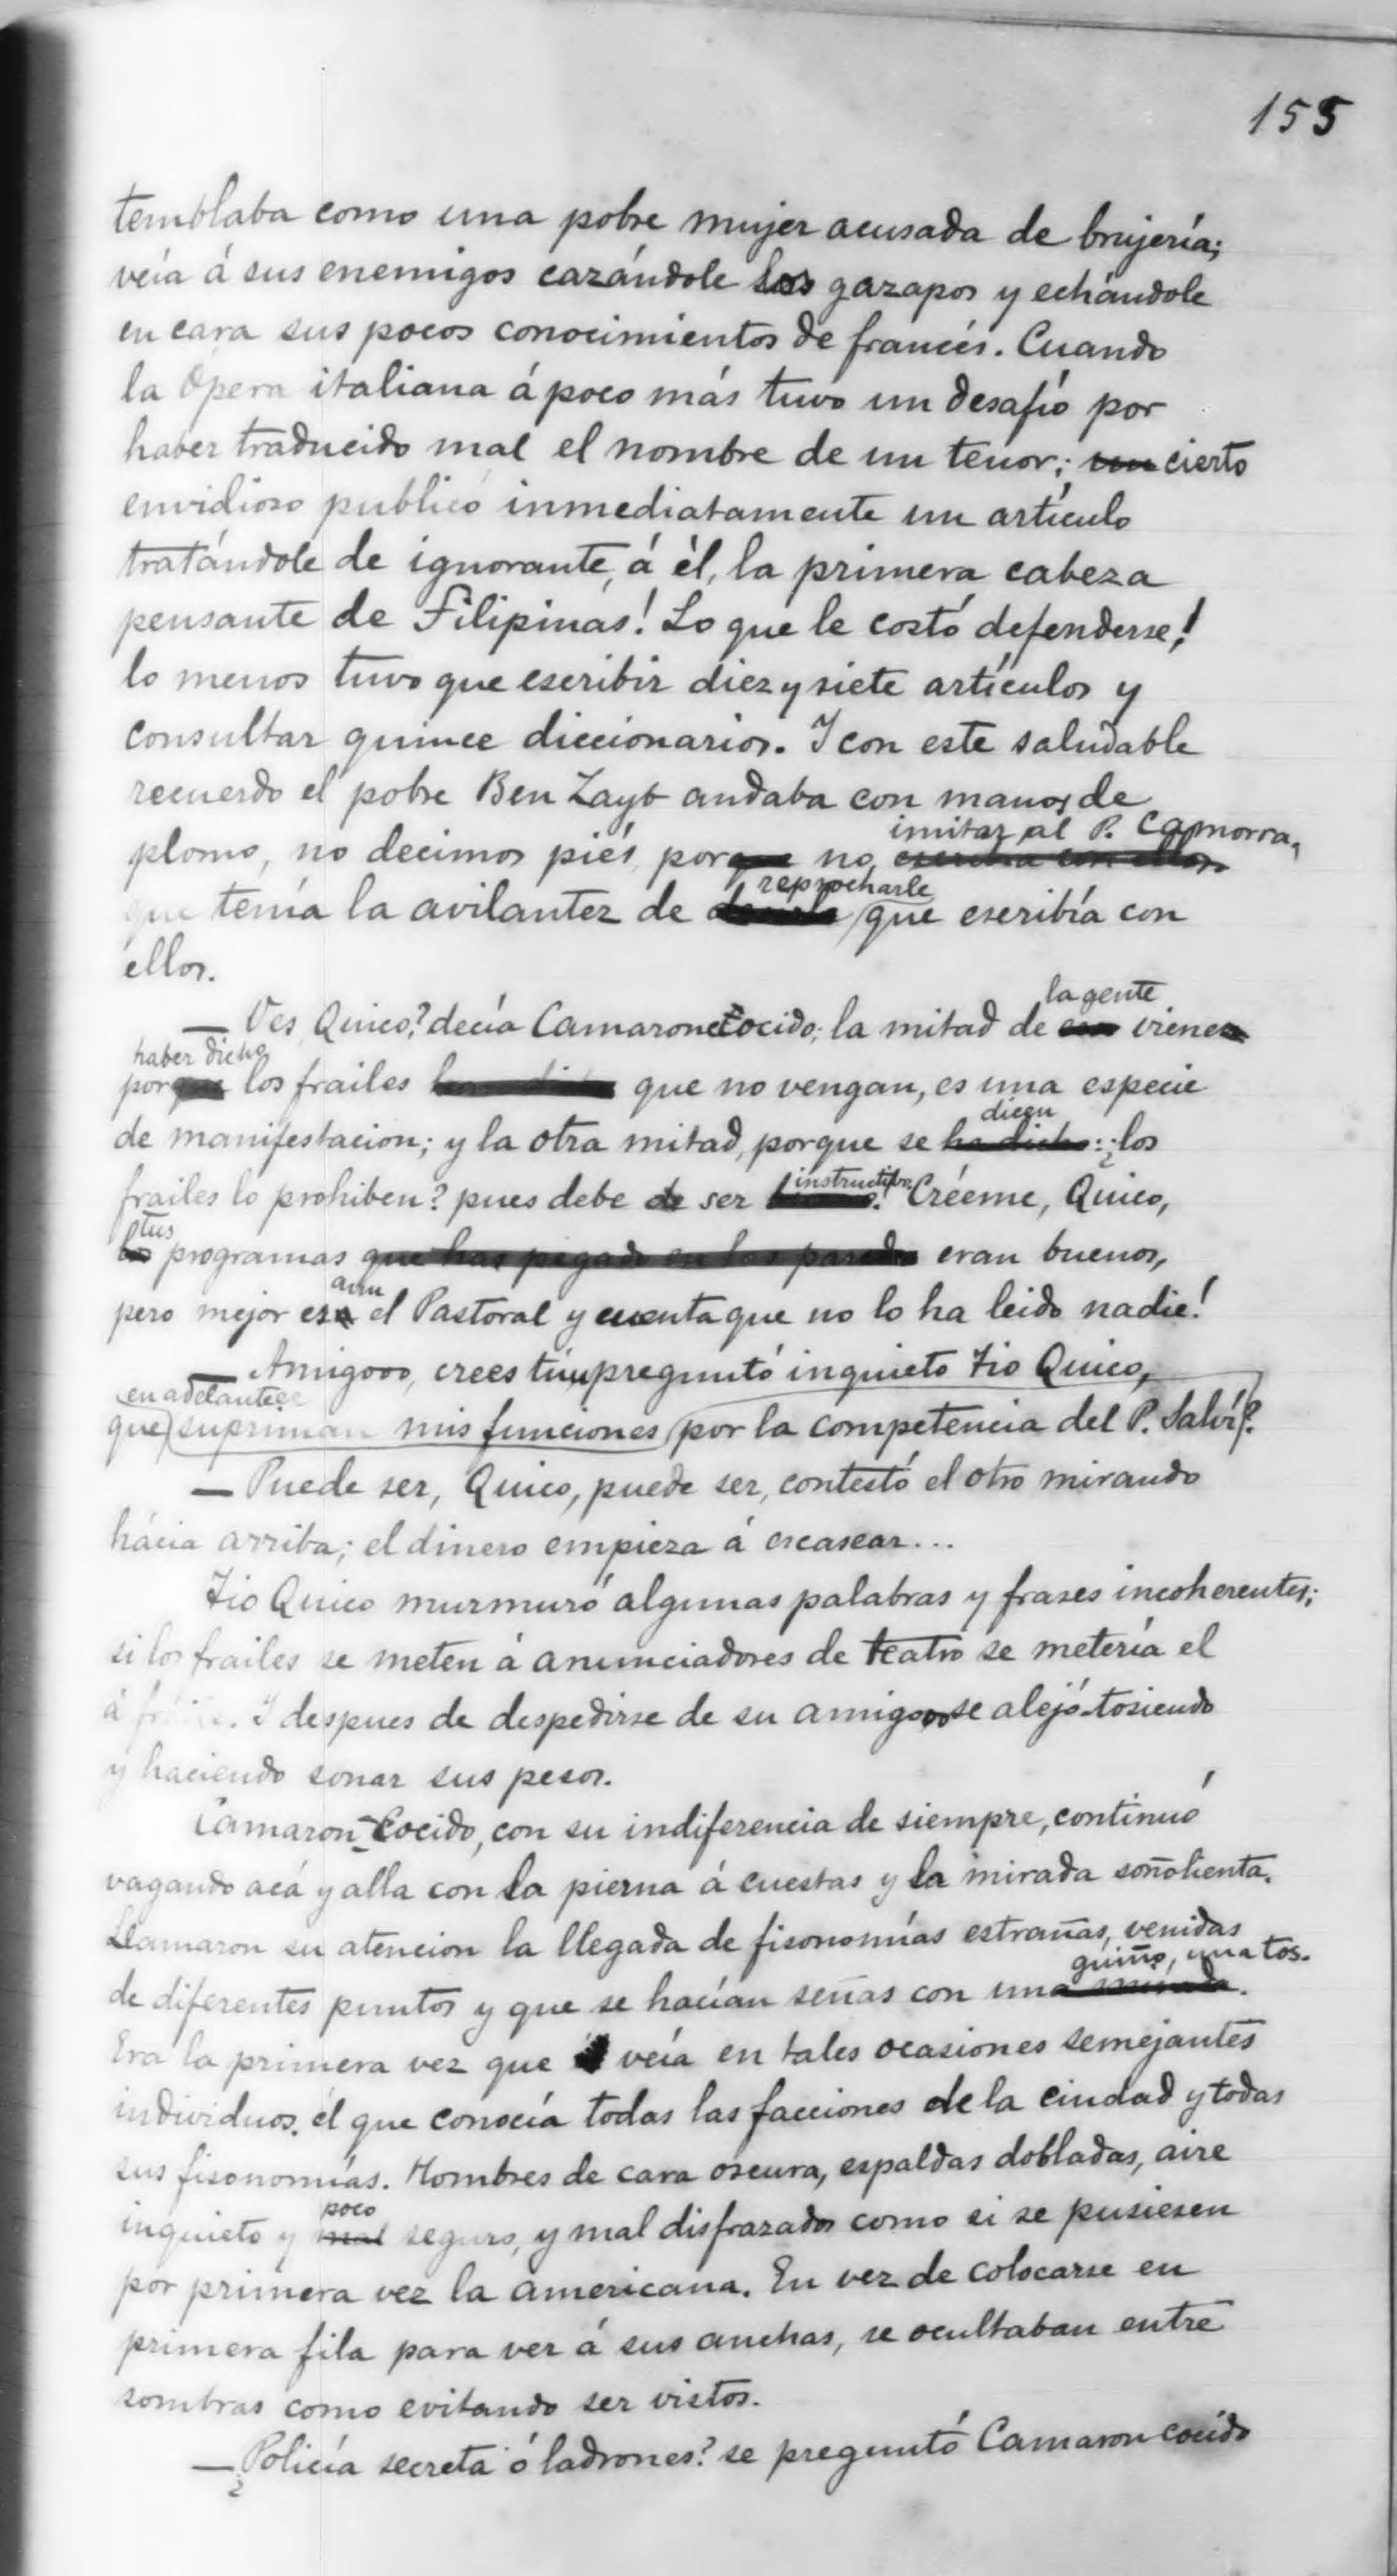 155
temblaba como una pobre mujer acusada de brujería;
veía á sus enemigos cazándole los gazapos y echándole
en cara sus pocos conocimientos de francés. Cuando
la Opera italiana á poco más tuvo un desafío por
haber traducido mal el nombre de un tenor; un cierto
envidioso publicó inmediatamente un artículo
tratándole de ignorante, á él, la primera cabeza
pensante de Filipinas! Lo que le costó defenderse!
lo menos tuvo que escribir diez y siete artículos y
consultar quince diccionarios. Y con este saludable
recuerdo el pobre Ben Zayb andaba con manos de
imitar al P. Camorra,
plomo, no decimos piés, porque no escriba con ellos
reprocharle
que tenía la avilantez de que escribía con
ellos.
la gente
— Ves, Quico? decía Camaroncocido; la mitad de vienen
haber dicho
porque los frailes que no vengan, es una especie
dicen
de manifestacion; y la otra mitad, porque se ha dicho: ¿los
instructivo.
frailes lo prohiben? pues debe de ser Créeme, Quico,
tus
los programas que has pegado en las paredes eran buenos,
aun
pero mejor era el Pastoral y cuenta que no lo ha leido nadie!
— Amigooo, crees túuu preguntó inquieto Tio Quico,
en adelante
que supriman mis funciones por la competencia del P. Salví?
— Puede ser, Quico, puede ser, contestó el otro mirando
hácia arriba; el dinero empieza á escasear...
Tio Quico murmuró algunas palabras y frases incoherentes;
si los frailes se meten á anunciadores de teatro se metería el
á fraile. Y despues de despedirse de su amigooo se alejó tosiendo
y haciendo sonar sus pesos.
Camaron-Cocido, con su indiferencia de siempre, continuó
vagando acá y alla con la pierna á cuestas y la mirada soñolienta.
Llamaron su atencion la llegada de fisonomías estrañas, venidas
guiño, una tos.
de diferentes puntos y que se hacían señas con una mirada.
Era la primera vez que veía en tales ocasiones semejantes
individuos, él que conocía todas las facciones de la ciudad y todas
sus fisonomías. Hombres de cara oscura, espaldas dobladas, aire
poco
inquieto y mal seguro, y mal disfrazados como si se pusiesen
por primera vez la americana. En vez de colocarse en
primera fila para ver á sus anchas, se ocultaban entre
sombras como evitando ser vistos.
— ¿Policía secreta ó ladrones? se preguntó Camaroncocido